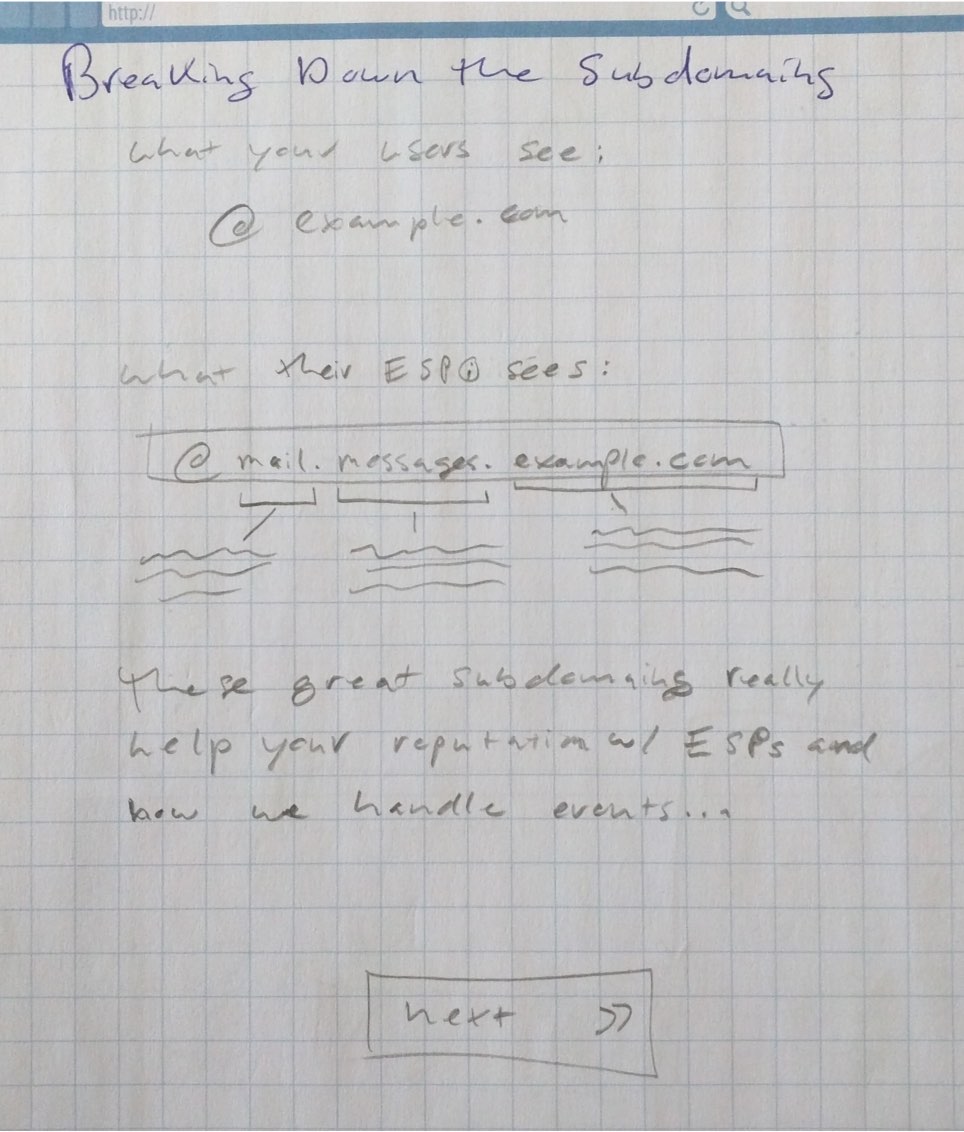 http://
Breaking Down the Subdomains
what your users see:
@ example.com
what their ESP ⓘ sees:
@ mail. messages. example.com
These great subdomains really
help your reputation w/ ESPs and
how we handle events...
next >>